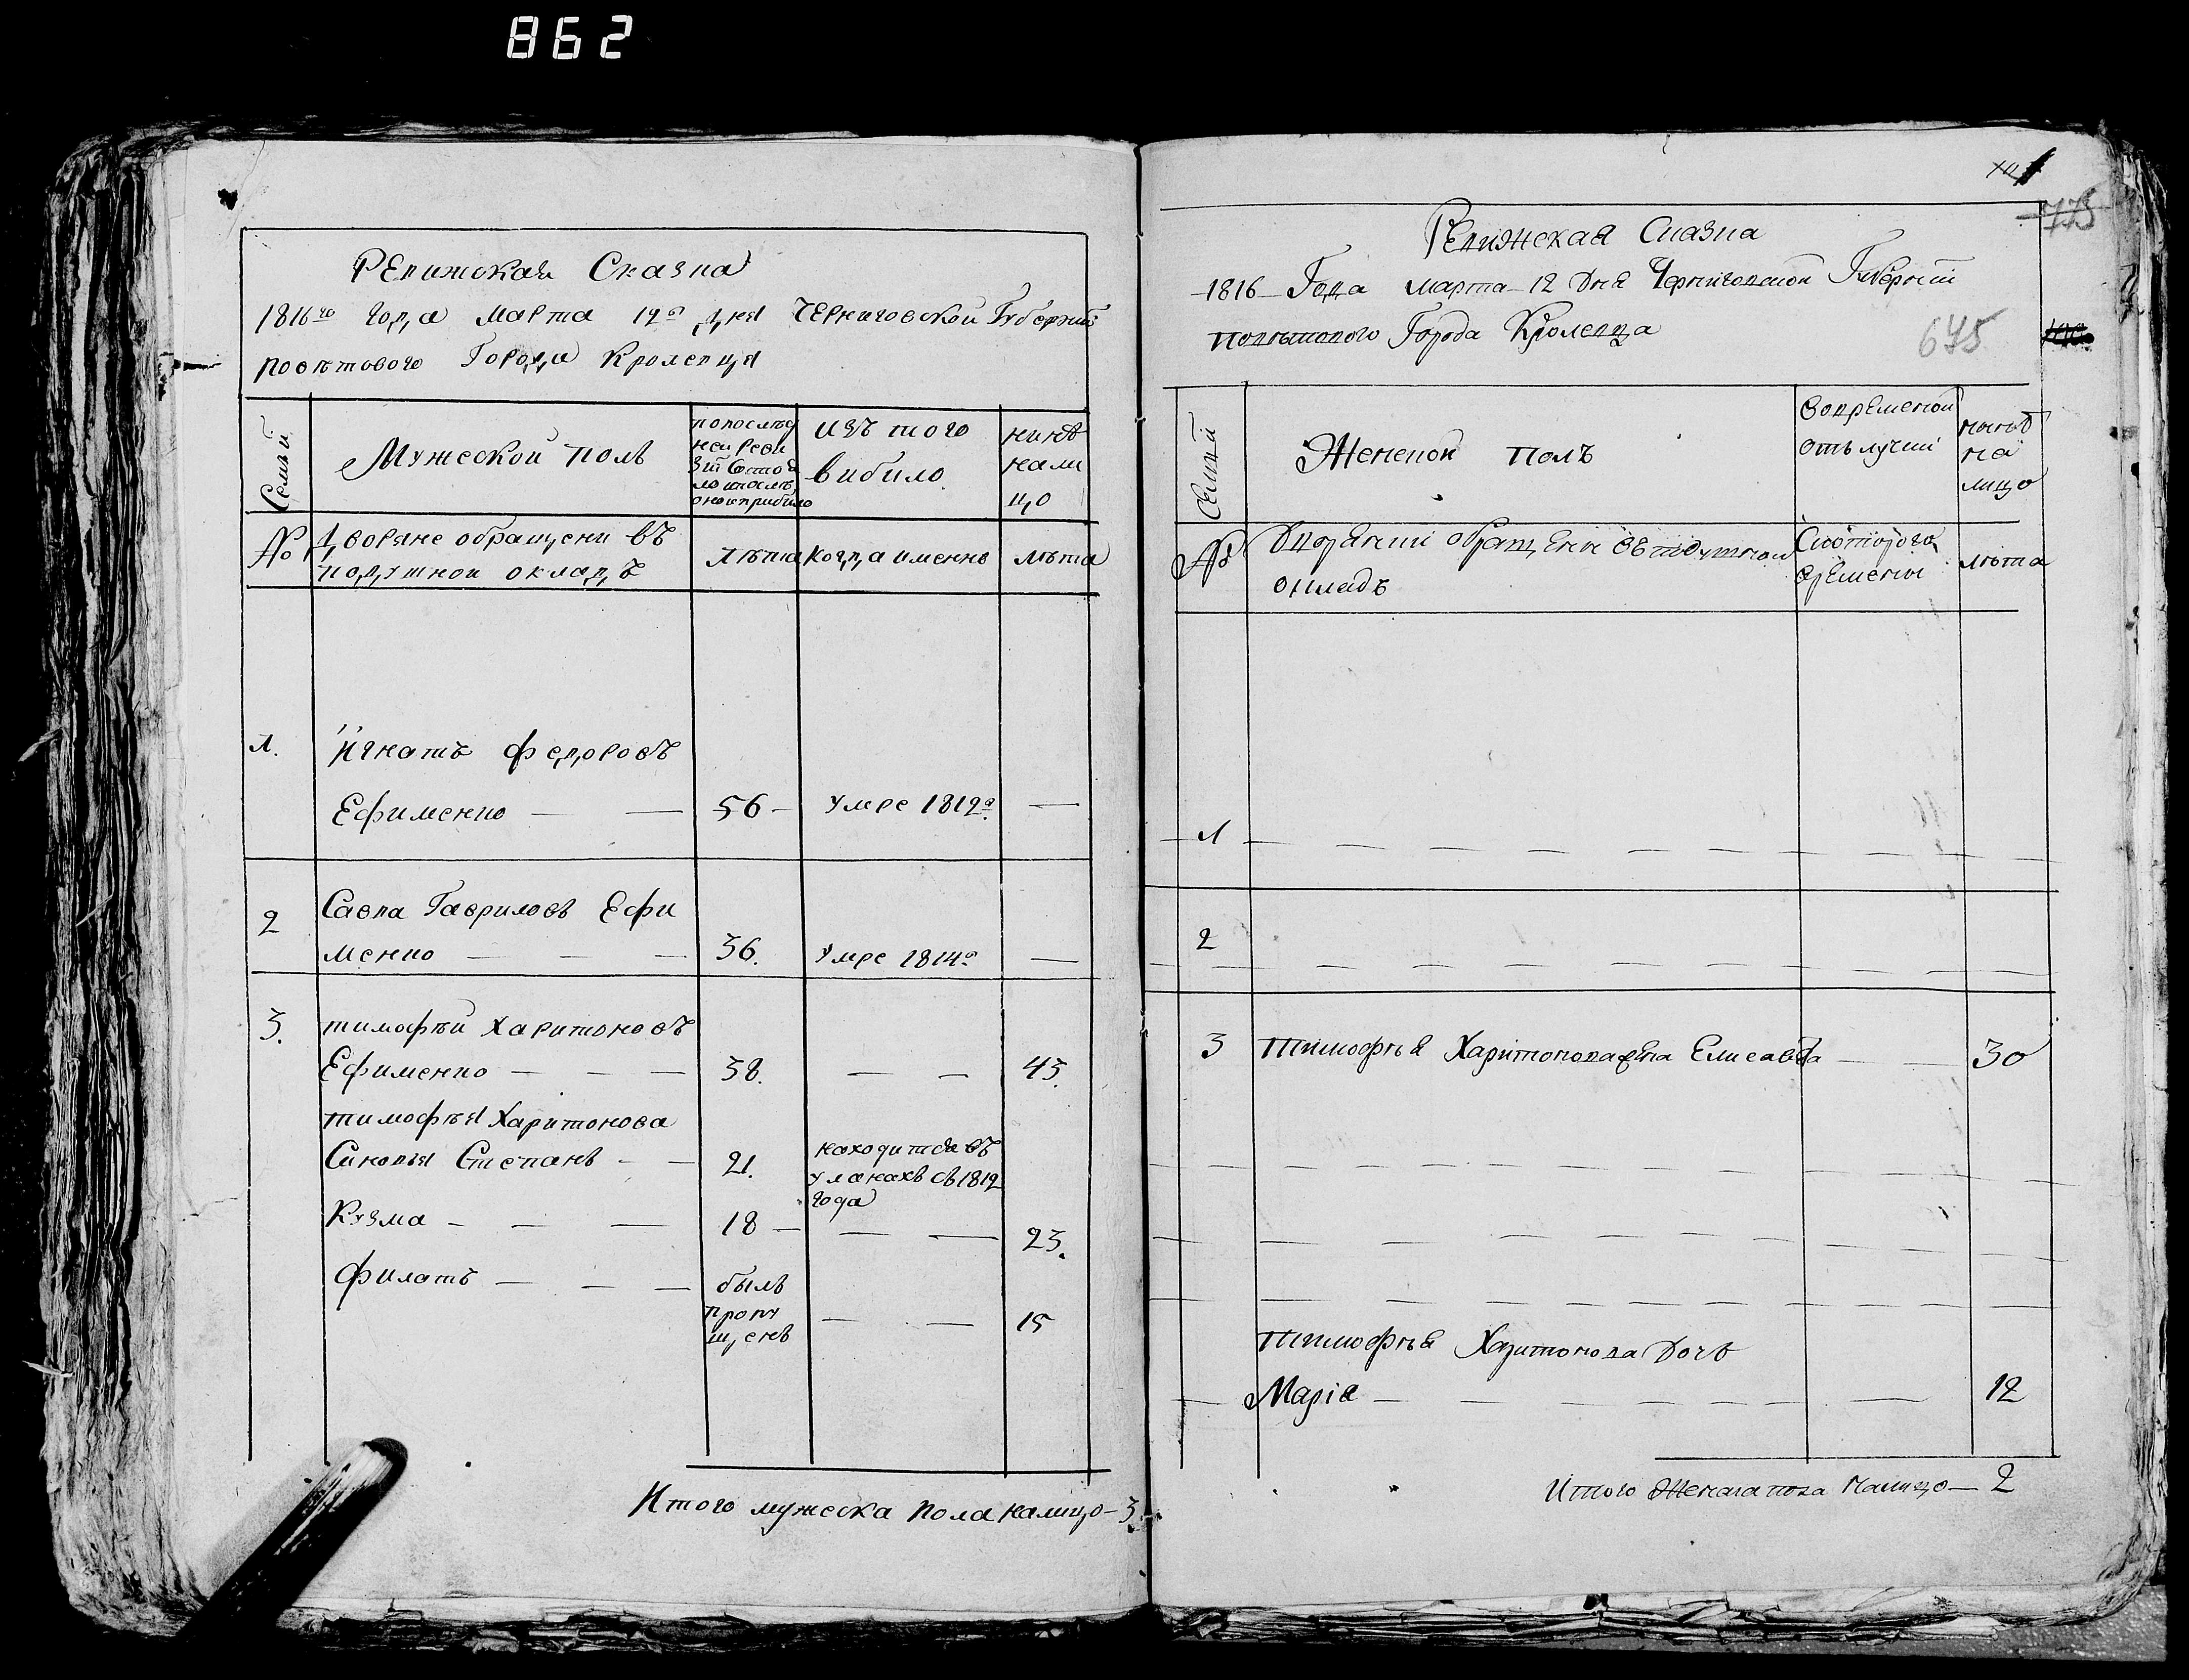 862
Ревижская Сказка
1816го года Марта 12го дня Черниговской Губернии
поветового Города Кролевця
Семьи
Мужеской полъ
попослед
ней реви
зии состоя
ло ипослѣ
оной прибило
изъ того
вибило
нинѣ
нали
цо
№
Дворяне обращени въ
подушной окладъ
лѣта
когда именно
лѣта
1.
Игнатъ Федоровъ
Ефименко — —
56 —
умре 1812го
—
2
Савва Гавриловъ Ефи
менко — — —
36.
умре 1814го
—
3.
тимофѣй Харитоновъ
Ефименко — — —
38.
— —
43.
тимофѣя Харитонова
Синовья Степанъ — —
21.
находится въ
уланахъ съ 1812
года
Кузма — — —
18 —
— —
23.
Филатъ — — —
былъ
пропу
щенъ
— —
15
Итого мужеска пола налицо — 3.
775
Ревижская Сказка
1816 Года марта 12 Дня Черниговской Губернии
поветового Города Кролевца
675
Семьи
Женской полъ
Вовременой
отълучки
нынѣ
на
лицо
№
Дворянии обращени въ подушной
окладъ
Скоторого
времени
лѣта
1
2
3
Тимофея Харитонова жена Елисавета
30
Тимофея Харитонова дочь
Марія
12
Итого Женска пола налицо — 2